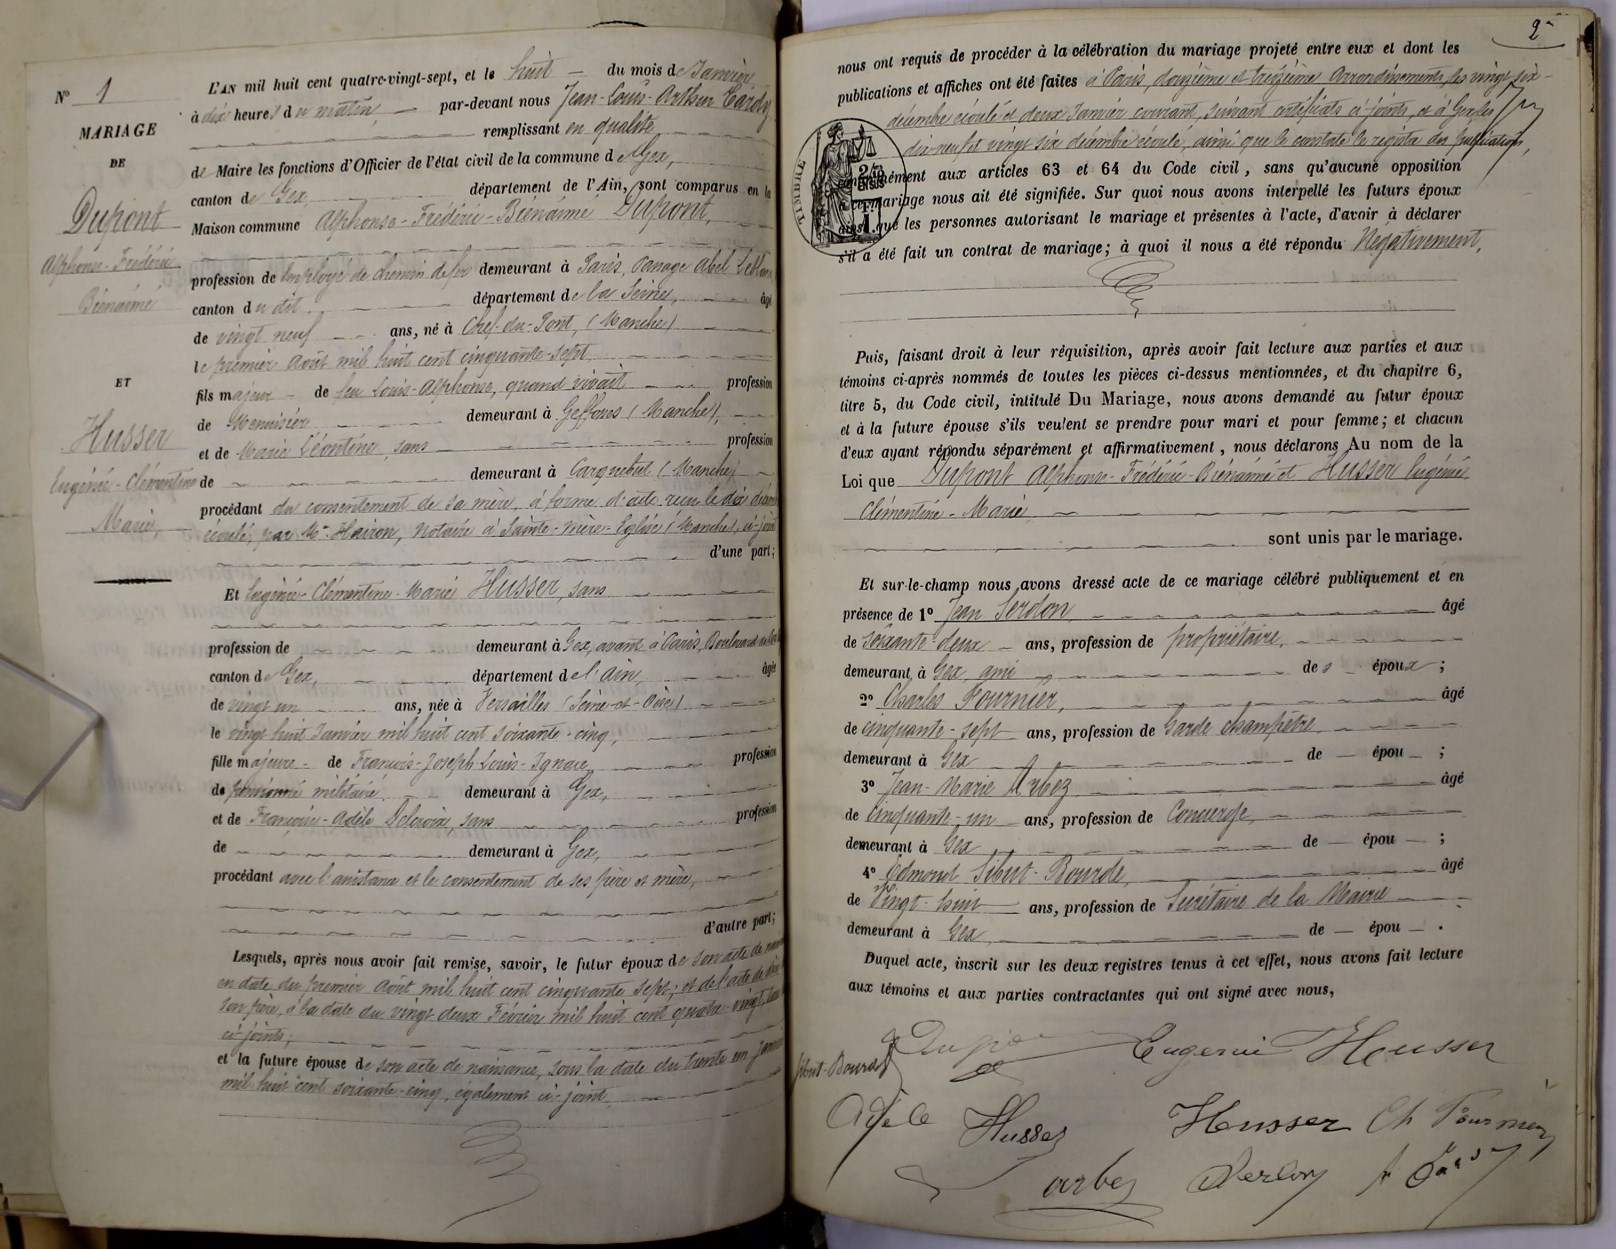 N° 1
MARIAGE
DE
Dupont
Alphonse-Frédéric
Bienaimé
ET
Husser
Eugénie-Clémentine
Marie,
L'AN mil huit cent quatre-vingt-sept, et le huit du mois de Janvier
à dix heures du matin par-devant nous Jean-Louis-Arthur
remplissant en qualité
de Maire les fonctions d'Officier de l'état civil de la commune de Gex,
canton de Gex département de l'Ain, sont comparus en la
Maison commune Alphonse-Frédéric-Bienaimé Dupont,
profession de Employé de chemin de fer demeurant à Paris, Passage Abel Leblanc
canton du dit département de la Seine, âgé
de vingt neuf ans, né à Chef-du-Pont, (Manche)
le premier Août mil huit cent cinquante-sept
fils majeur de feu Louis-Alphonse, quand vivait profession
de Menuisier demeurant à Geffosses (Manche),
et de Marie Léontine, sans profession
de demeurant à Carquebut (Manche)
procédant du consentement de sa mère, à forme d'acte reçu le dix
écoulé, par Me Hairon, Notaire à Sainte-Mère-Eglise (Manche), ci-joint
d'une part;
Et Eugénie-Clémentine-Marie Husser, sans
profession de demeurant à Gex, avant à Paris, Boulevard
canton de Gex, département de l'Ain, âgée
de vingt un ans, née à Versailles (Seine-et-Oise)
le vingt huit Janvier mil huit cent soixante-cinq,
fille majeure de François-Joseph-Louis-Ignace profession
de pensionné militaire demeurant à Gex,
et de Françoise-Adèle Delacroix, sans profession
de demeurant à Gex,
procédant avec l'assistance et le consentement de ses père et mère,
d'autre part;
Lesquels, après nous avoir fait remise, savoir, le futur époux de son acte de
en date du premier Août mil huit cent cinquante sept; et de l'acte de
son père, à la date du vingt-deux Février mil huit cent quatre-vingt
ci-joints,
et la future épouse de son acte de naissance, sous la date du trente un
mil huit cent soixante-cinq, également ci-joint.
2
nous ont requis de procéder à la célébration du mariage projeté entre eux et dont les
publications et affiches ont été faites à Paris, douzième et treizième Arrondissements, les vingt six
décembre écoulé et deux Janvier courant, suivant certificats ci-joints, et à Gex les
dix-neuf et vingt six décembre écoulé, ainsi que le constate le registre des publications,
TIMBRE
conformément aux articles 63 et 64 du Code civil, sans qu'aucune opposition
à ce mariage nous ait été signifiée. Sur quoi nous avons interpellé les futurs époux
ainsi que les personnes autorisant le mariage et présentes à l'acte, d'avoir à déclarer
s'il a été fait un contrat de mariage; à quoi il nous a été répondu Négativement,
Puis, faisant droit à leur réquisition, après avoir fait lecture aux parties et aux
témoins ci-après nommés de toutes les pièces ci-dessus mentionnées, et du chapitre 6,
titre 5, du Code civil, intitulé Du Mariage, nous avons demandé au futur époux
et à la future épouse s'ils veulent se prendre pour mari et pour femme; et chacun
d'eux ayant répondu séparément et affirmativement, nous déclarons Au nom de la
Loi que Dupont Alphonse-Frédéric-Bienaimé et Husser Eugénie
Clémentine-Marie
sont unis par le mariage.
Et sur-le-champ nous avons dressé acte de ce mariage célébré publiquement et en
présence de 1° Jean Serdon, âgé
de soixante-deux ans, profession de propriétaire,
demeurant à Gex, ami des époux;
2° Charles Fournier, âgé
de cinquante-sept ans, profession de Garde champêtre
demeurant à Gex de — épou — ;
3° Jean-Marie Arbez âgé
de cinquante-un ans, profession de Concierge,
demeurant à Gex de — épou — ;
4° Edmond Sibut-Bourde, âgé
de Vingt-huit ans, profession de Secrétaire de la Mairie
demeurant à Gex, de — épou — .
Duquel acte, inscrit sur les deux registres tenus à cet effet, nous avons fait lecture
aux témoins et aux parties contractantes qui ont signé avec nous,
Dupont Eugénie Husser
Sibut-Bourde
Adèle Husser Husser Ch Fournier
arbez Serdon